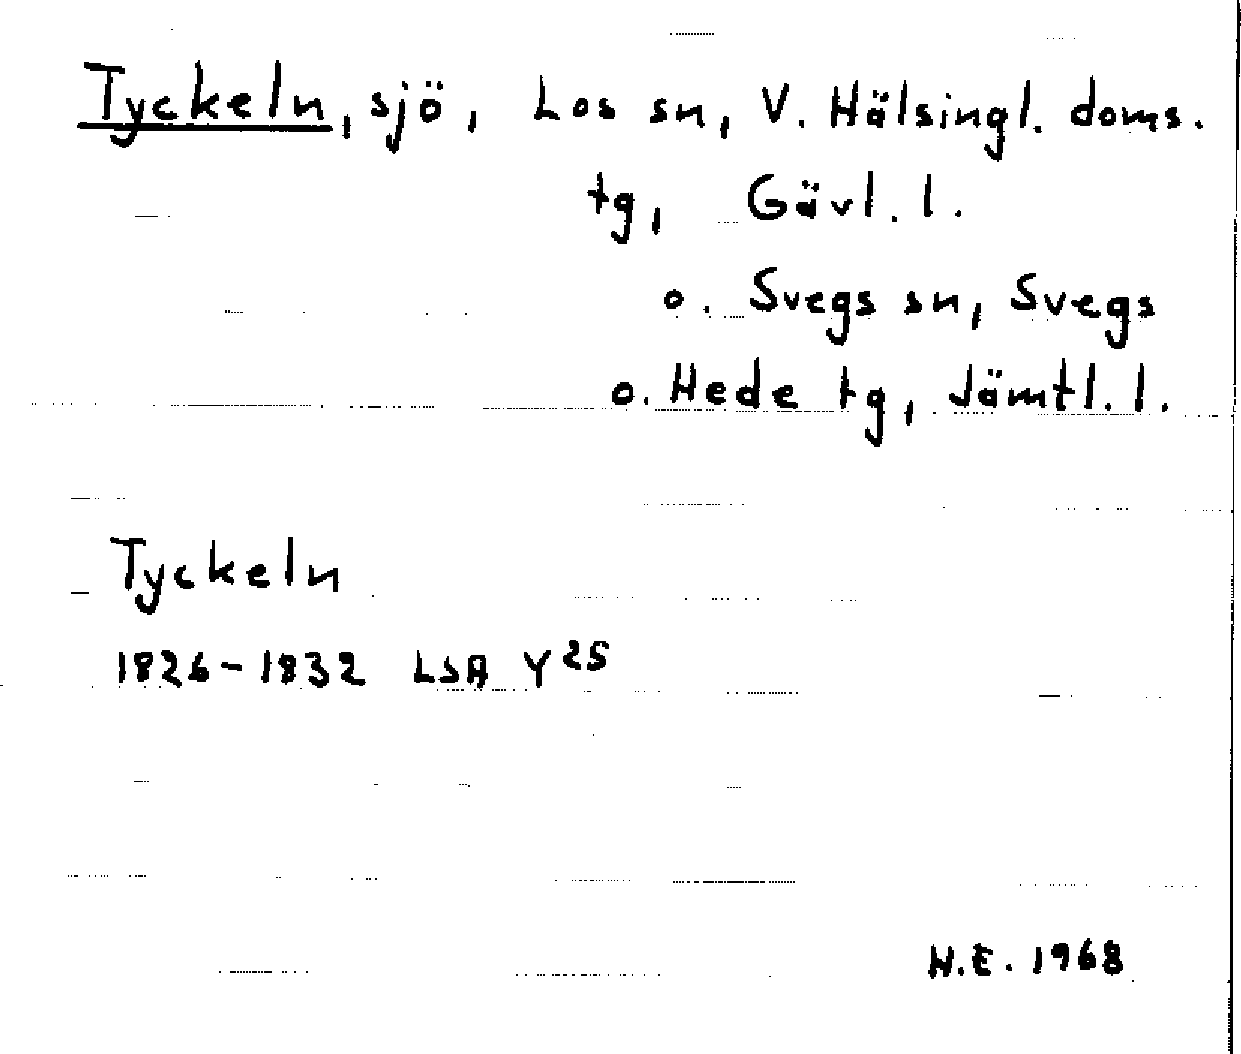 Tyckeln, sjö, Los sn, V. Hälsingl. doms.
tg, Gävl. l.
o. Svegs sn, Svegs
o. Hede tg, Jämtl. l.
Tyckeln
1826-1832 LSA Y 25
H.E. 1968